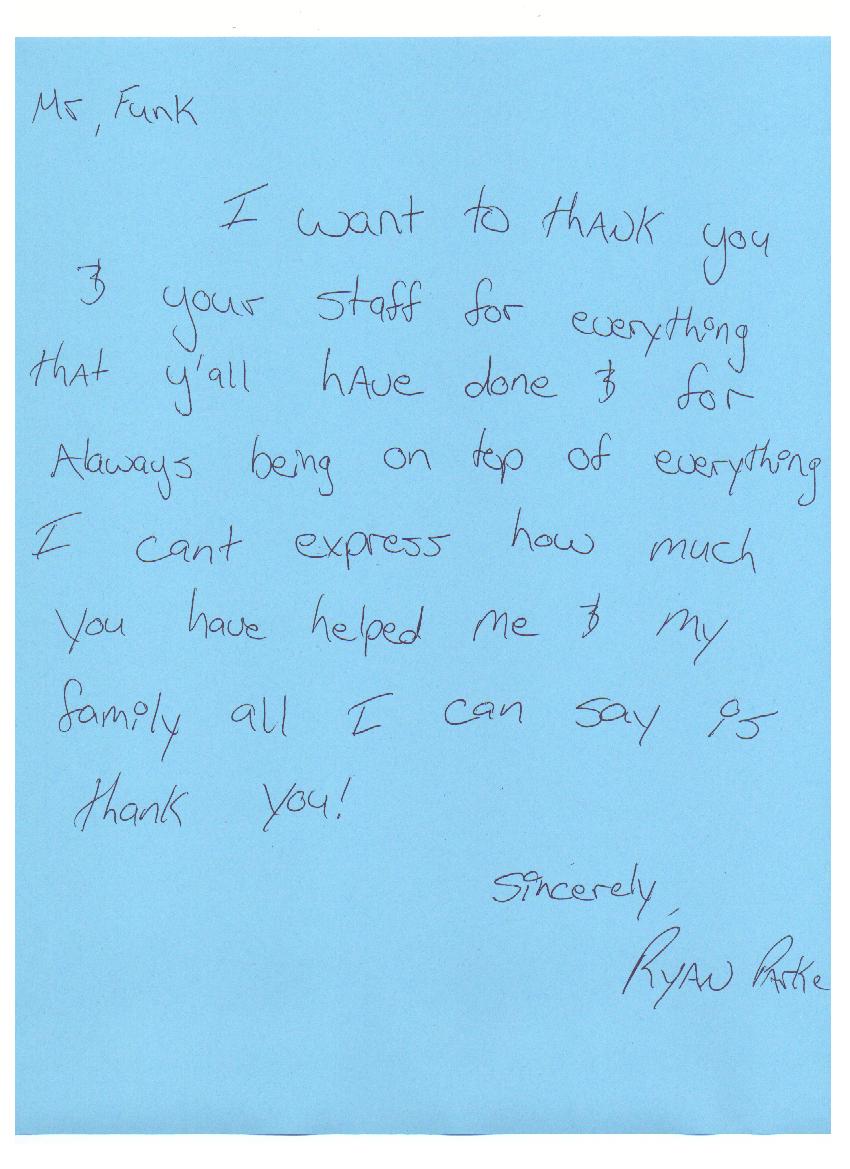 Mr, Funk
I want to thANK you
& your staff for everything
thAt y'all hAve done & for
Alaways being on top of everything
I cant express how much
you have helped me & my
family all I can say is
thank you!
Sincerely,
RYAN PArKe